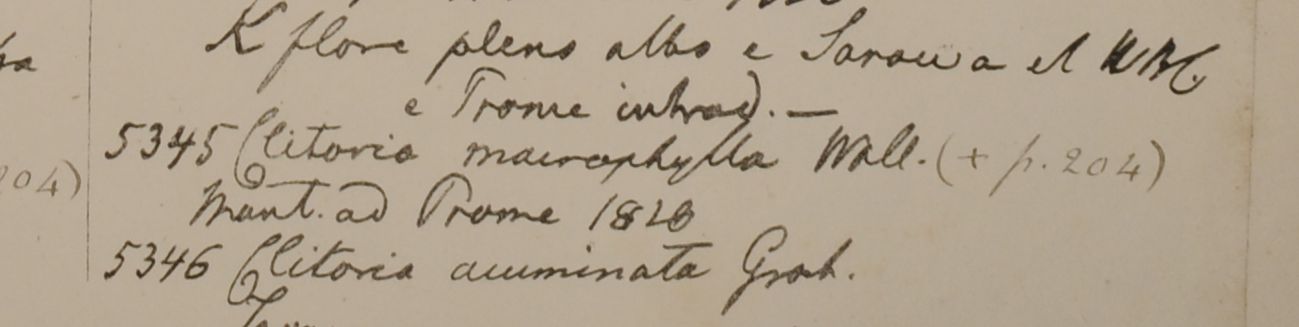 K flore pleno albo e Sarawa et HBC
e Prome introd. —
204)
5345 Clitoria macrophylla Wall. (+ p. 204)
Mont. ad Prome 1826
5346 Clitoria acuminata Grah.